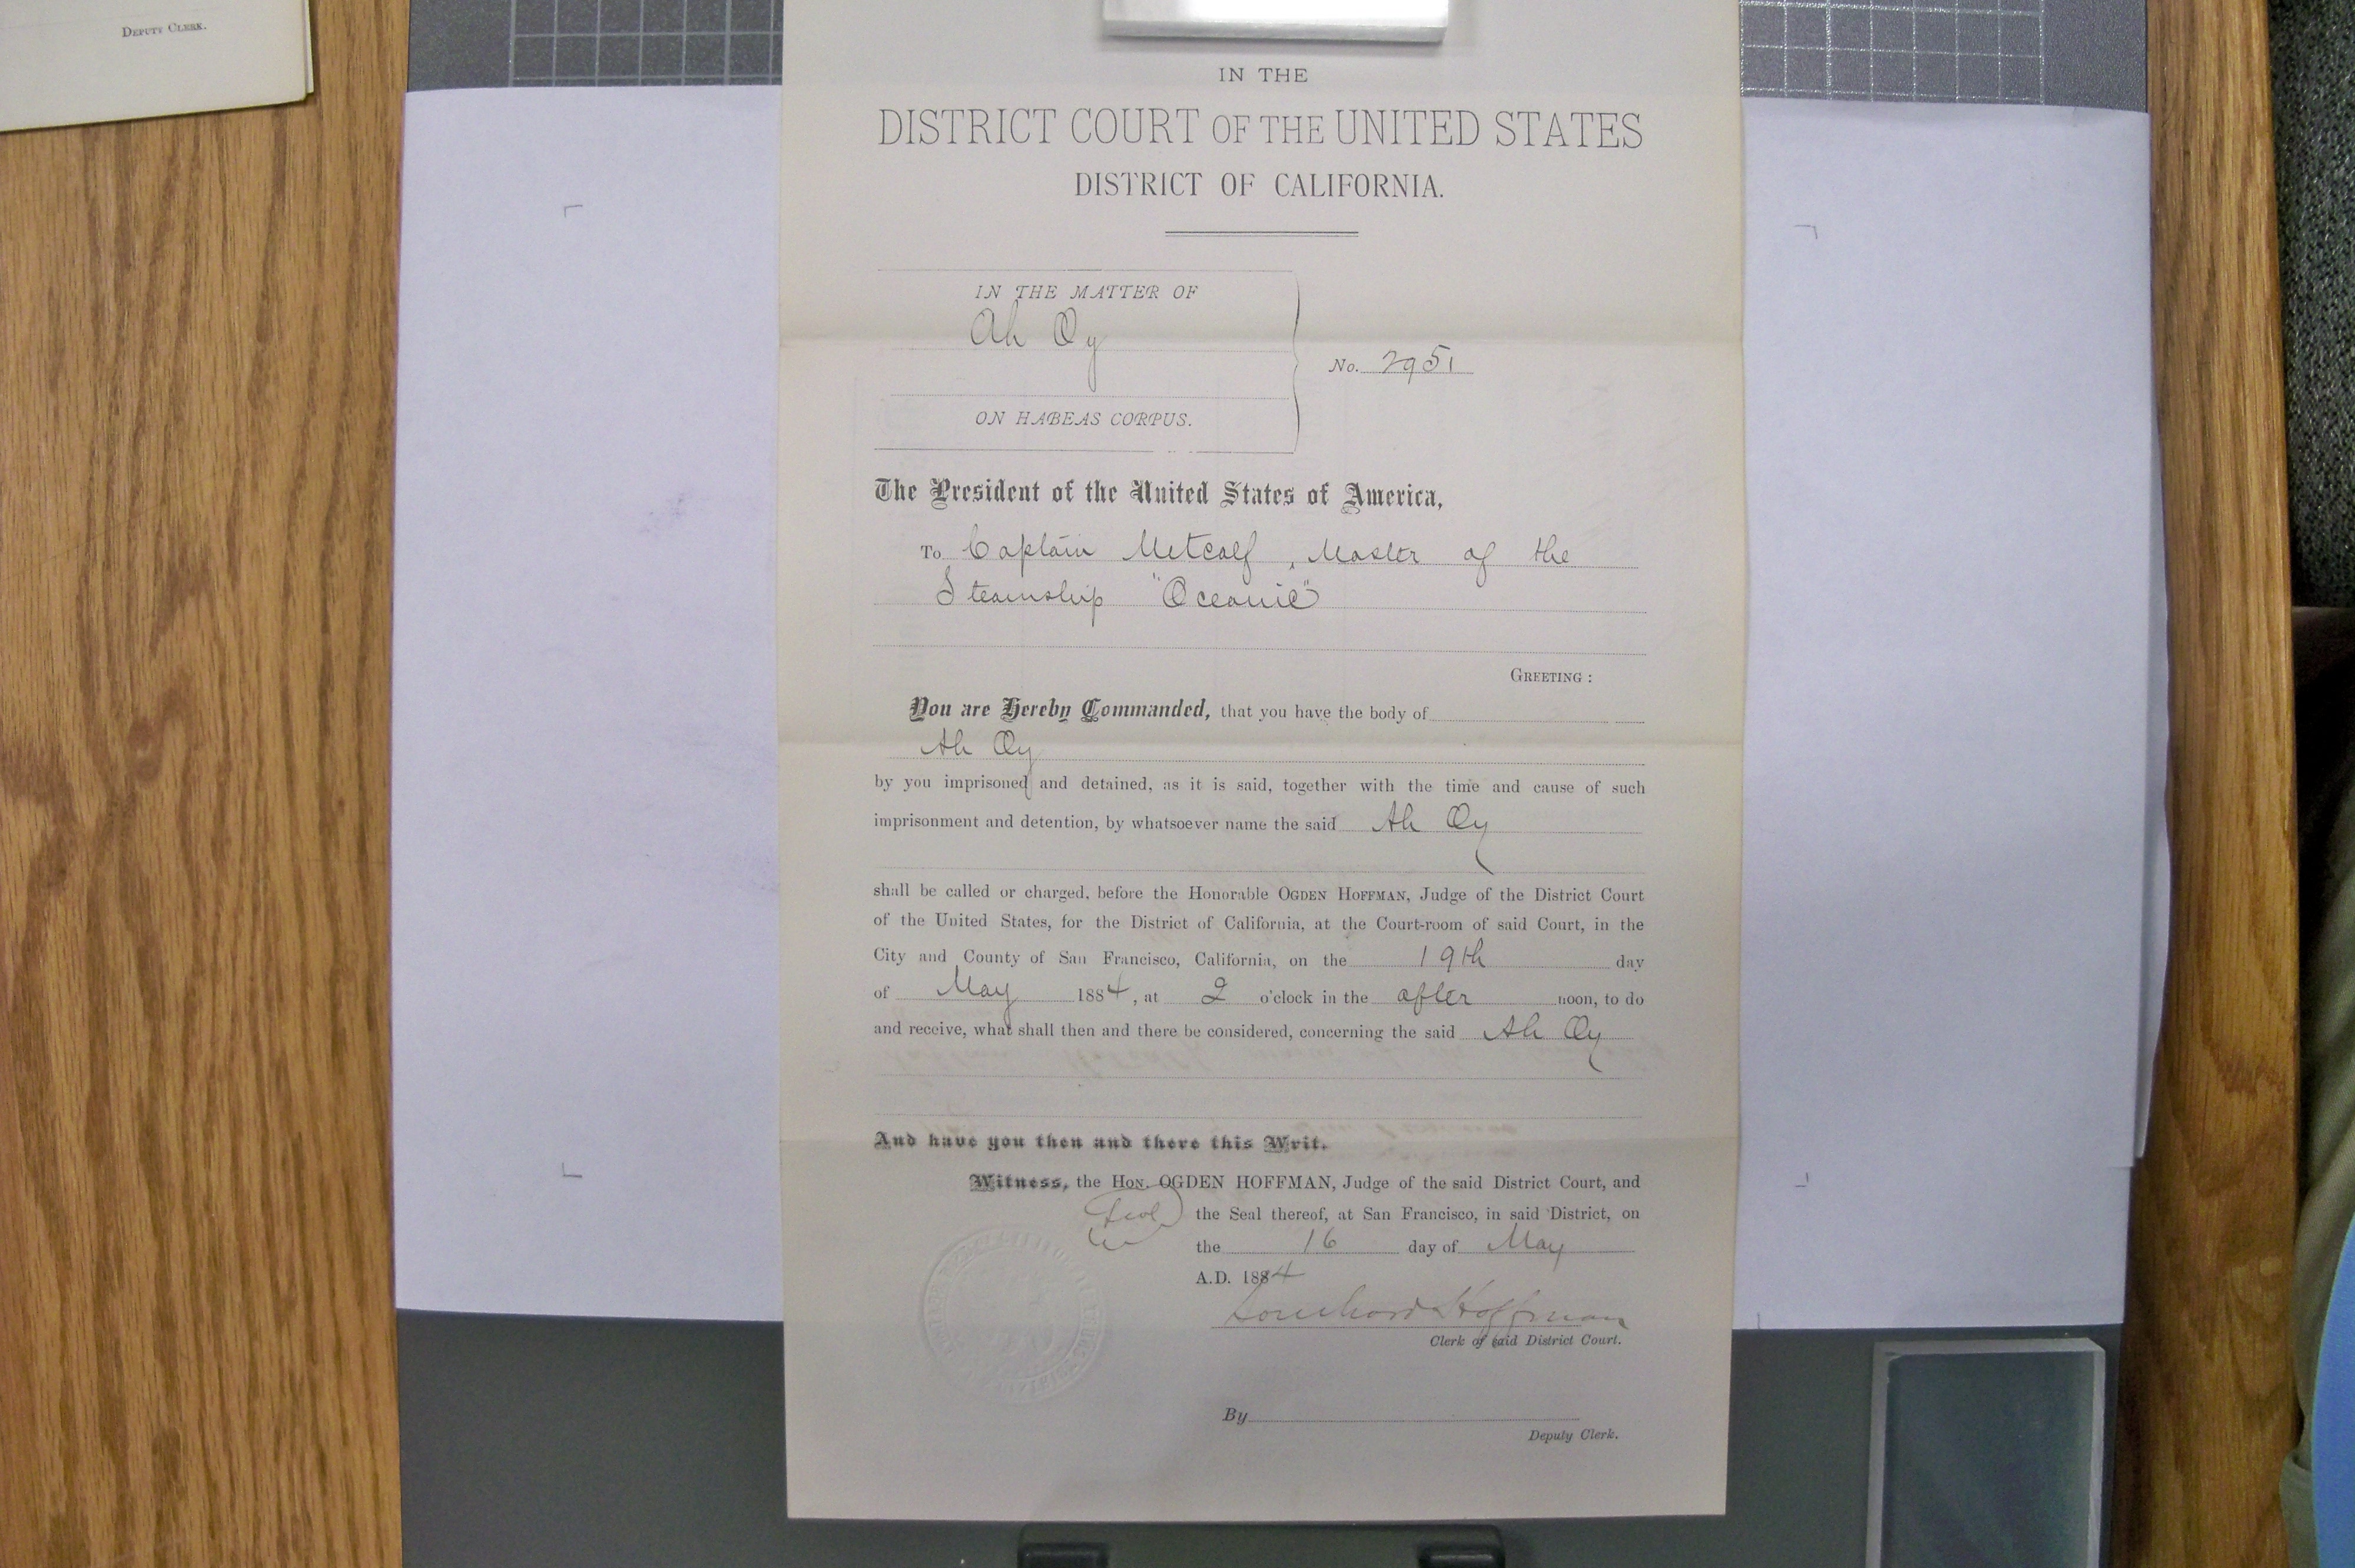 DEPUTY CLERK.
IN THE
DISTRICT COURT OF THE UNITED STATES
DISTRICT OF CALIFORNIA.
IN THE MATTER OF
Ah Oy
No. 2951
ON HABEAS CORPUS.
The President of the United States of America,
To Captain Metcalf, Master of the
Steamship "Oceanic"
GREETING :
You are Hereby Commanded, that you have the body of
Ah Oy
by you imprisoned and detained, as it is said, together with the time and cause of such
imprisonment and detention, by whatsoever name the said Ah Oy
shall be called or charged, before the Honorable OGDEN HOFFMAN, Judge of the District Court
of the United States, for the District of California, at the Court-room of said Court, in the
City and County of San Francisco, California, on the 19th day
of May 1884, at 2 o'clock in the after noon, to do
and receive, what shall then and there be considered, concerning the said Ah Oy
And have you then and there this Writ.
Witness, the HON. OGDEN HOFFMAN, Judge of the said District Court, and
Seal the Seal thereof, at San Francisco, in said District, on
the 16 day of May
A.D. 1884
Southard Hoffman
Clerk of said District Court.
By
Deputy Clerk.